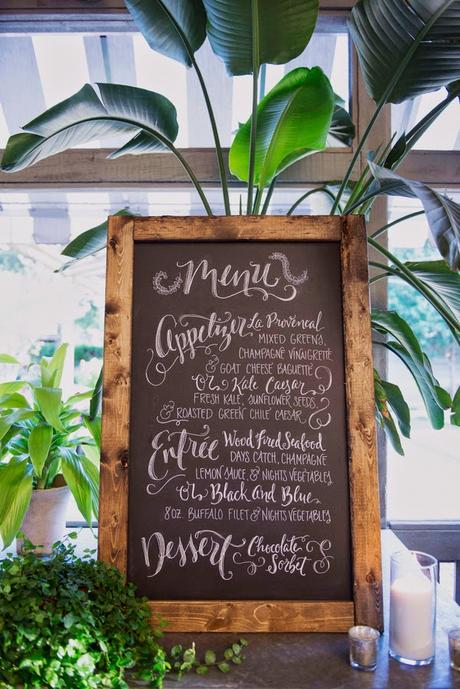 Menu
Appetizer La Provencal
Mixed Greens,
Champagne Vinaigrette
& Goat Cheese Baguette
Or Kale Caesar
Fresh Kale, Sunflower Seeds,
& Roasted Green Chile Caesar
Entree Wood Fired Seafood
Days Catch, Champagne
Lemon Sauce, & Nights Vegetables
Or Black and Blue
8oz. Buffalo Filet & Nights Vegetables
Dessert Chocolate
Sorbet